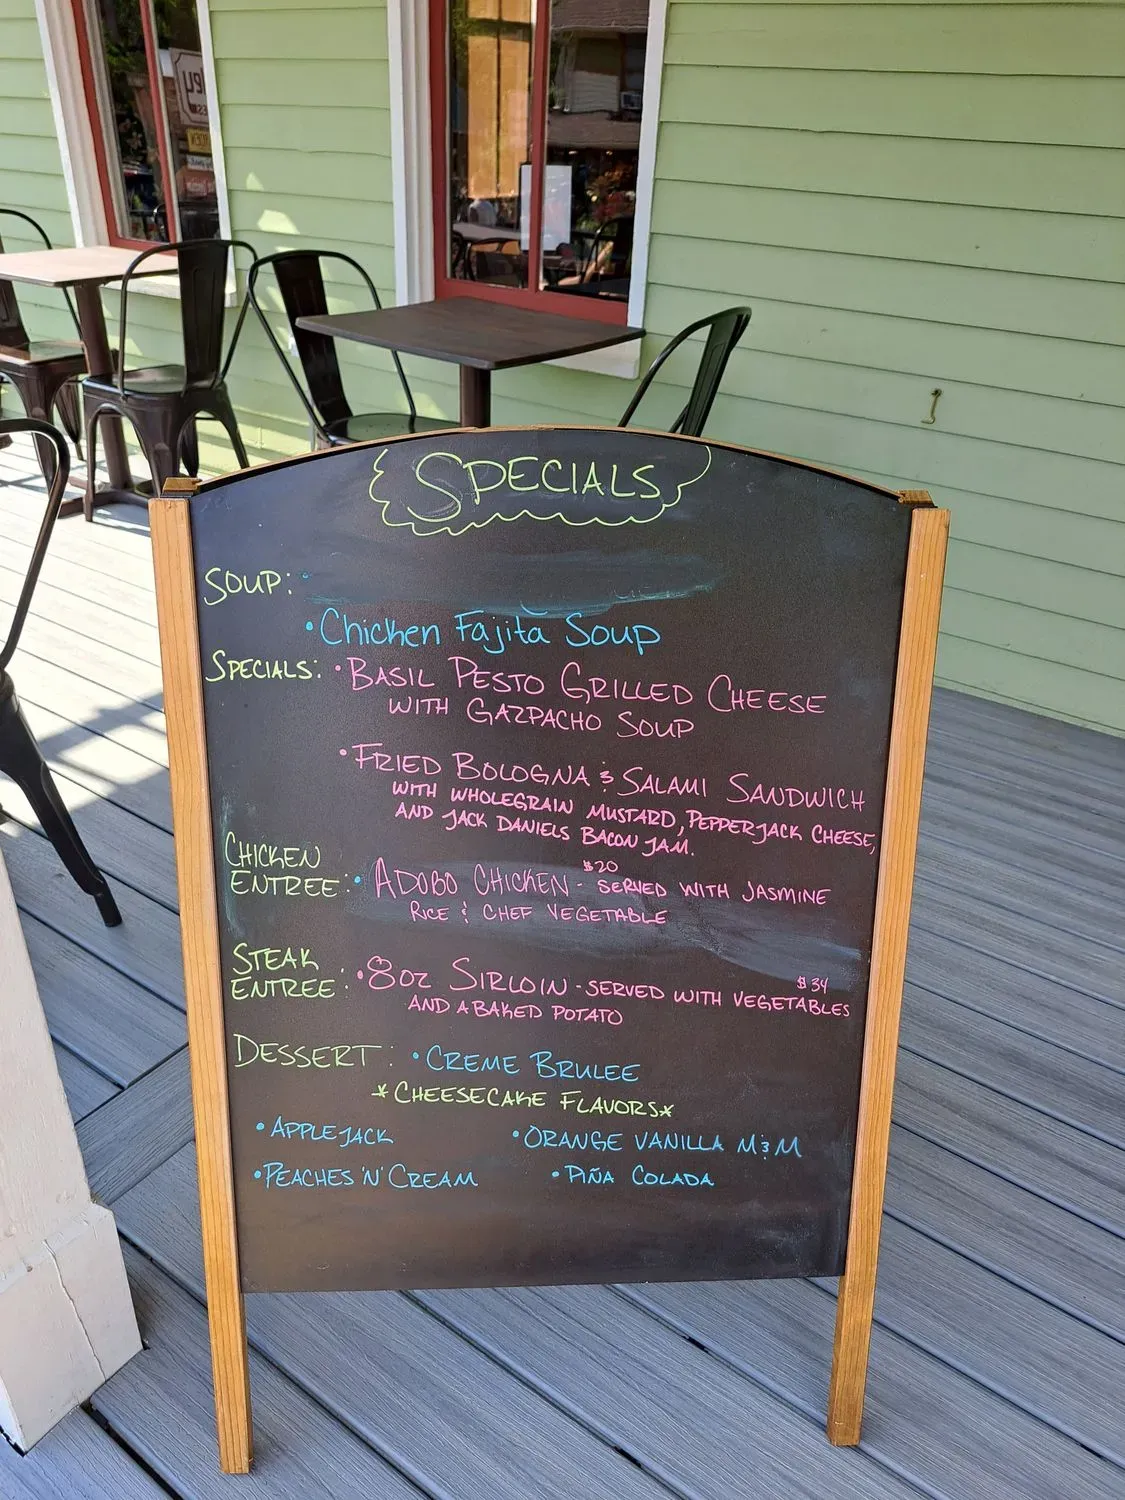 SPECIALS
SOUP:
• Chicken Fajita Soup
SPECIALS: • BASIL PESTO GRILLED CHEESE
WITH GAZPACHO SOUP
• FRIED BOLOGNA & SALAMI SANDWICH
WITH WHOLEGRAIN MUSTARD, PEPPERJACK CHEESE,
AND JACK DANIELS BACON JAM.
$20
CHICKEN
ENTREE: • ADOBO CHICKEN - SERVED WITH JASMINE
RICE & CHEF VEGETABLE
$34
STEAK
ENTREE: • 8OZ SIRLOIN - SERVED WITH VEGETABLES
AND A BAKED POTATO
DESSERT: • CREME BRULEE
*CHEESECAKE FLAVORS*
• APPLEJACK • ORANGE VANILLA M&M
• PEACHES 'N' CREAM • PIÑA COLADA